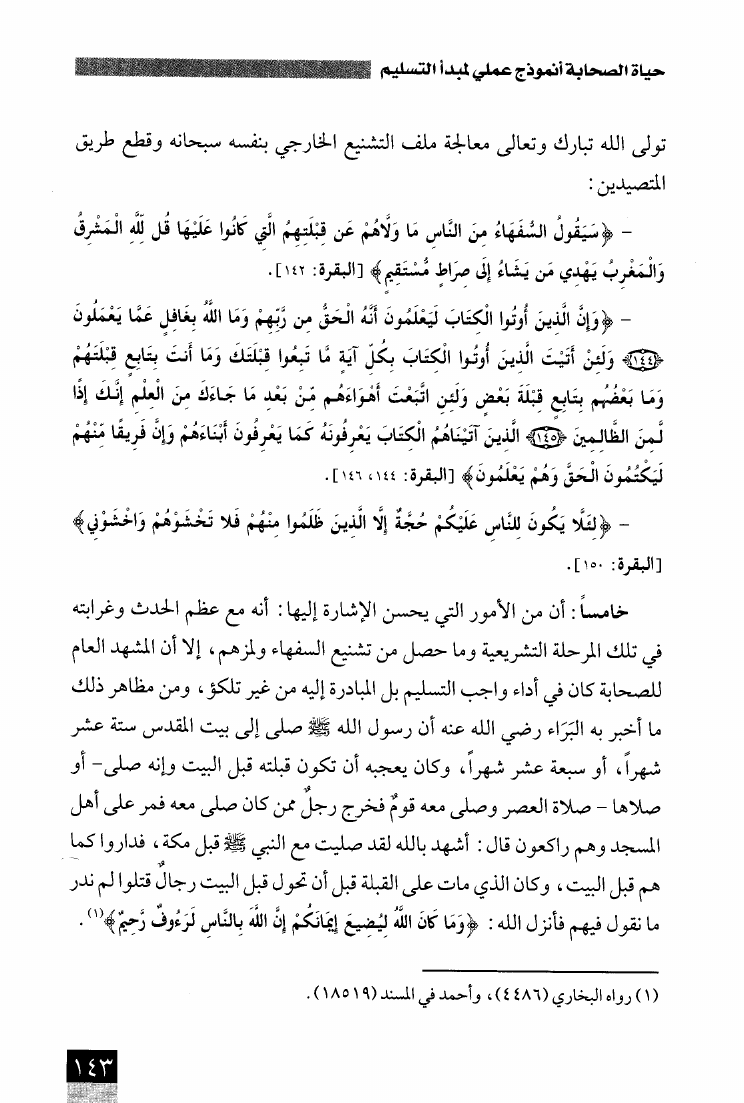 حياة الصحابة أنموذج عملي لمبدأ التسليم
تولى الله تبارك وتعالى معالجة ملف التشنيع الخارجي بنفسه سبحانه وقطع طريق
المتصيدين:
- ﴿سَيَقُولُ السُّفَهَاءُ مِنَ النَّاسِ مَا وَلَّاهُمْ عَن قِبْلَتِهِمُ الَّتِي كَانُوا عَلَيْهَا قُل لِّلَّهِ الْمَشْرِقُ
وَالْمَغْرِبُ يَهْدِي مَن يَشَاءُ إِلَى صِرَاطٍ مُّسْتَقِيمٍ﴾ [البقرة: ١٤٢].
- ﴿وَإِنَّ الَّذِينَ أُوتُوا الْكِتَابَ لَيَعْلَمُونَ أَنَّهُ الْحَقُّ مِن رَّبِّهِمْ وَمَا اللَّهُ بِغَافِلٍ عَمَّا يَعْمَلُونَ
﴿١٤٤﴾ وَلَئِنْ أَتَيْتَ الَّذِينَ أُوتُوا الْكِتَابَ بِكُلِّ آيَةٍ مَّا تَبِعُوا قِبْلَتَكَ وَمَا أَنتَ بِتَابِعٍ قِبْلَتَهُمْ
وَمَا بَعْضُهُم بِتَابِعٍ قِبْلَةَ بَعْضٍ وَلَئِنِ اتَّبَعْتَ أَهْوَاءَهُم مِّنْ بَعْدِ مَا جَاءَكَ مِنَ الْعِلْمِ إِنَّكَ إِذًا
لَّمِنَ الظَّالِمِينَ ﴿١٤٥﴾ الَّذِينَ آتَيْنَاهُمُ الْكِتَابَ يَعْرِفُونَهُ كَمَا يَعْرِفُونَ أَبْنَاءَهُمْ وَإِنَّ فَرِيقًا مِّنْهُمْ
لَيَكْتُمُونَ الْحَقَّ وَهُمْ يَعْلَمُونَ﴾ [البقرة: ١٤٤، ١٤٦].
- ﴿لِئَلَّا يَكُونَ لِلنَّاسِ عَلَيْكُمْ حُجَّةٌ إِلَّا الَّذِينَ ظَلَمُوا مِنْهُمْ فَلَا تَخْشَوْهُمْ وَاخْشَوْنِي﴾
[البقرة: ١٥٠].
خامساً: أن من الأمور التي يحسن الإشارة إليها: أنه مع عظم الحدث وغرابته
في تلك المرحلة التشريعية وما حصل من تشنيع السفهاء ولمزهم، إلا أن المشهد العام
للصحابة كان في أداء واجب التسليم بل المبادرة إليه من غير تلكؤ، ومن مظاهر ذلك
ما أخبر به البَرَاء رضي الله عنه أن رسول الله ﷺ صلى إلى بيت المقدس ستة عشر
شهراً، أو سبعة عشر شهراً، وكان يعجبه أن تكون قبلته قبل البيت وإنه صلى- أو
صلاها - صلاة العصر وصلى معه قومٌ فخرج رجلٌ ممن كان صلى معه فمر على أهل
المسجد وهم راكعون قال: أشهد بالله لقد صليت مع النبي ﷺ قبل مكة، فداروا كما
هم قبل البيت، وكان الذي مات على القبلة قبل أن تحول قبل البيت رجالٌ قتلوا لم ندر
ما نقول فيهم فأنزل الله: ﴿وَمَا كَانَ اللَّهُ لِيُضِيعَ إِيمَانَكُمْ إِنَّ اللَّهَ بِالنَّاسِ لَرَءُوفٌ رَّحِيمٌ﴾(١).
(١) رواه البخاري (٤٤٨٦)، وأحمد في المسند (١٨٥١٩).
١٤٣